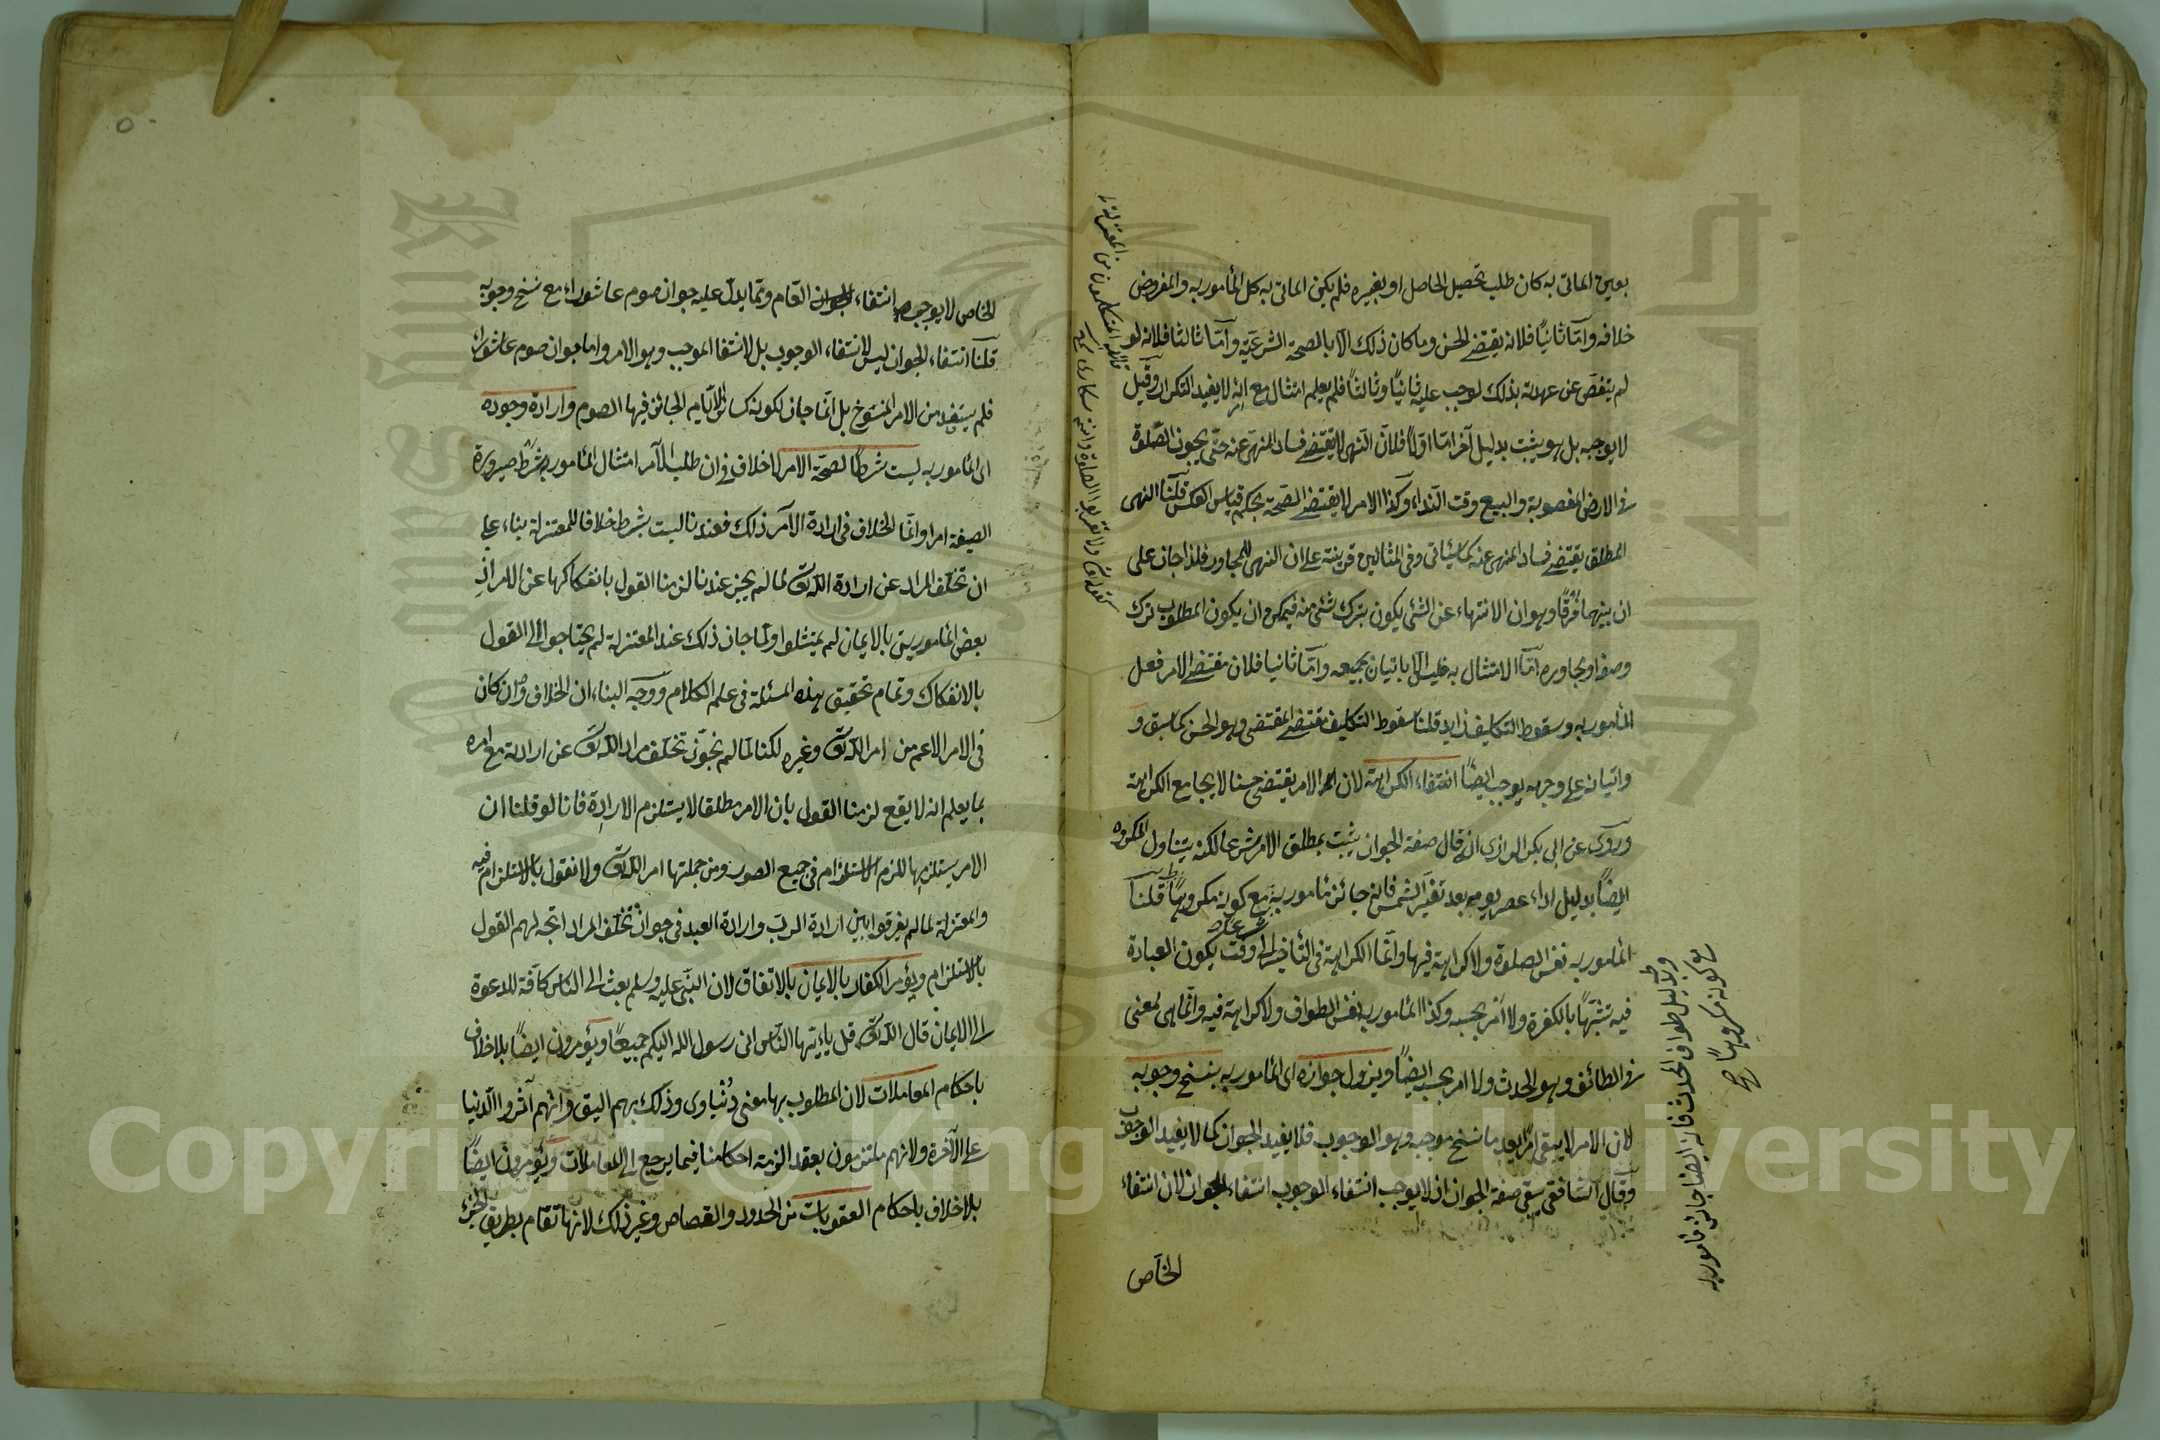 بعين الماتى به كان طلب تحصيل الحاصل او بغيره فلم يكن الماتى به كل المأمور به والمفروض
خلافه وامّا ثانيًا فلانه يقتضى الحسن وما كان ذلك الا بالصحة الشرعيّة وامّا ثالثا فلانه لو
لم يتفصّ عن عهدته بذلك لوجب عليه ثانيًا وثالثًا فلم يعلم امتثال مع انه لا يفيد التكرار وقيل
لا يوجبه بل هو يثبت بدليل آخر امّا اولاً فلانّ النهى لا يقتضى فساد المنهى عنه حتى يجوز الصّلوة
فى الارض المغصوبة والبيع وقت النداء وكذا الامر لا يقتضى الصّحة بحكم قياس العكس قلنا النهى
المطلق يقتضى فساد المنهى عنه كما سيأتى وفى المثالين قرينة على ان النهى للمجاور فلذا جاز على
ان بينهما فرقًا وهو ان الانتهاء عن الشئ يكون بترك شئ منه فيمكن ان يكون المطلوب ترك
وصف او مجاوره امّا الامتثال به فليس الّا باتيان بجميعه وامّا ثانيا فلان مقتضى الامر فعل
المأمور به وسقوط التكليف زايد قلنا سقوط التكليف مقتضى المقتضى وهو الحسن كما سبق و
واتيانه على وجهه يوجب ايضًا انتفاء الكراهة لان الامر يقتضى حسنا لا يجامع الكراهة
وروى عن ابى بكر الرازى انه قال صفة الجواز يثبت بمطلق الامر شرعا لكنه يتناول المكروه
ايضًا بدليل اداء عصر يومه بعد تغيّر الشمس فانه جائز مأمور به شرعا مع كونه مكروهًا قلنا
المأمور به نفس الصلوة ولا كراهة فيها وانّما الكراهة فى التأخير الى وقت يكون العبادة
فيه تشبّهًا بالكفرة ولا امر بحسبه وكذا المأمور به نفس الطواف ولا كراهة فيه وانّما هى لمعنى
فى الطائف وهو الحدث ولا امر بحسبه ايضًا ويزول جوازه اى المأمور به بنسخ وجوبه
لان الامر لا يبقى امرًا بعد ما نسخ موجبه وهو الوجوب فلا يفيد الجواز كما لا يفيد الوجوب
وقال الشافعى يبقى صفة الجواز اذ لا يوجب انتفاء الوجوب انتفاء الجواز لان انتفاء
الخاص
قاله المتكلمون من المعتزلة
كقوله تعالى ولا تقربوا الصلوة وانتم سكارى
وبدليل طواف المحدث فانه ايضا جائز مأمور به
مع كونه مكروهًا صح
الخاص لا يوجب انتفاء العام ومما يدل عليه جواز صوم عاشوراء مع نسخ وجوبه
قلنا انتفاء الجواز ليس لانتفاء الوجوب بل لانتفا الموجب وهو الامر واما جواز صوم عاشوراء
فلم يستفد من الامر المنسوخ بل انّما جاز لكونه كسائر الايّام الجائز فيها الصوم وارادة وجوده
اى المأمور به ليست شرطًا لصحّة الامر لا خلاف فى ان طلب الآمر امتثال المأمور به شرط صيرورة
الصيغة امرا وانّما الخلاف فى ارادة الآمر ذلك فعندنا ليست بشرط خلافا للمعتزلة بناء على
ان تخلّف المراد عن ارادة الله تعالى لما لم يجز عندنا لزمنا القول بانفكاكها عن الامر اذ
بعض المأمورين بالايمان لم يمتثلوا ولما جاز ذلك عند المعتزلة لم يحتاجوا الى القول
بالانفكاك وتمام تحقيق هذه المسئلة فى علم الكلام ووجه البناء ان الخلاف وان كان
فى الامر الاعم من امر الله تعالى وغيره لكنا لما لم نجوّز تخلّف مراد الله تعالى عن ارادته مع امره
بما يعلم انه لا يقع لزمنا القول بان الامر مطلقا لا يستلزم الارادة فانا لو قلنا ان
الامر يستلزمها للزم الاستلزام فى جميع الصور ومن جملتها امر الله تعالى ولا نقول بالاستلزام فيه
والمعتزلة لما لم يفرقوا بين ارادة الربّ وارادة العبد فى جواز تخلّف المراد اتجه لهم القول
بالاستلزام ويؤمر الكفار بالايمان بالاتفاق لان النبى عليه وسلم بعث الى الناس كافّة للدعوة
الى الايمان قال الله تعالى قل ياايّها النّاس انى رسول الله اليكم جميعًا ويؤمرون ايضًا بلا خلاف
باحكام المعاملات لان المطلوب بها معنى دنياوى وذلك بهم اليق وانهم آثروا الدنيا
على الآخرة ولانهم ملتزمون بعقد الذمة احكامنا فيما يرجع الى المعاملات ويؤمرون ايضًا
بلا خلاف باحكام العقوبات من الحدود والقصاص وغير ذلك لانها تقام بطريق الخزى